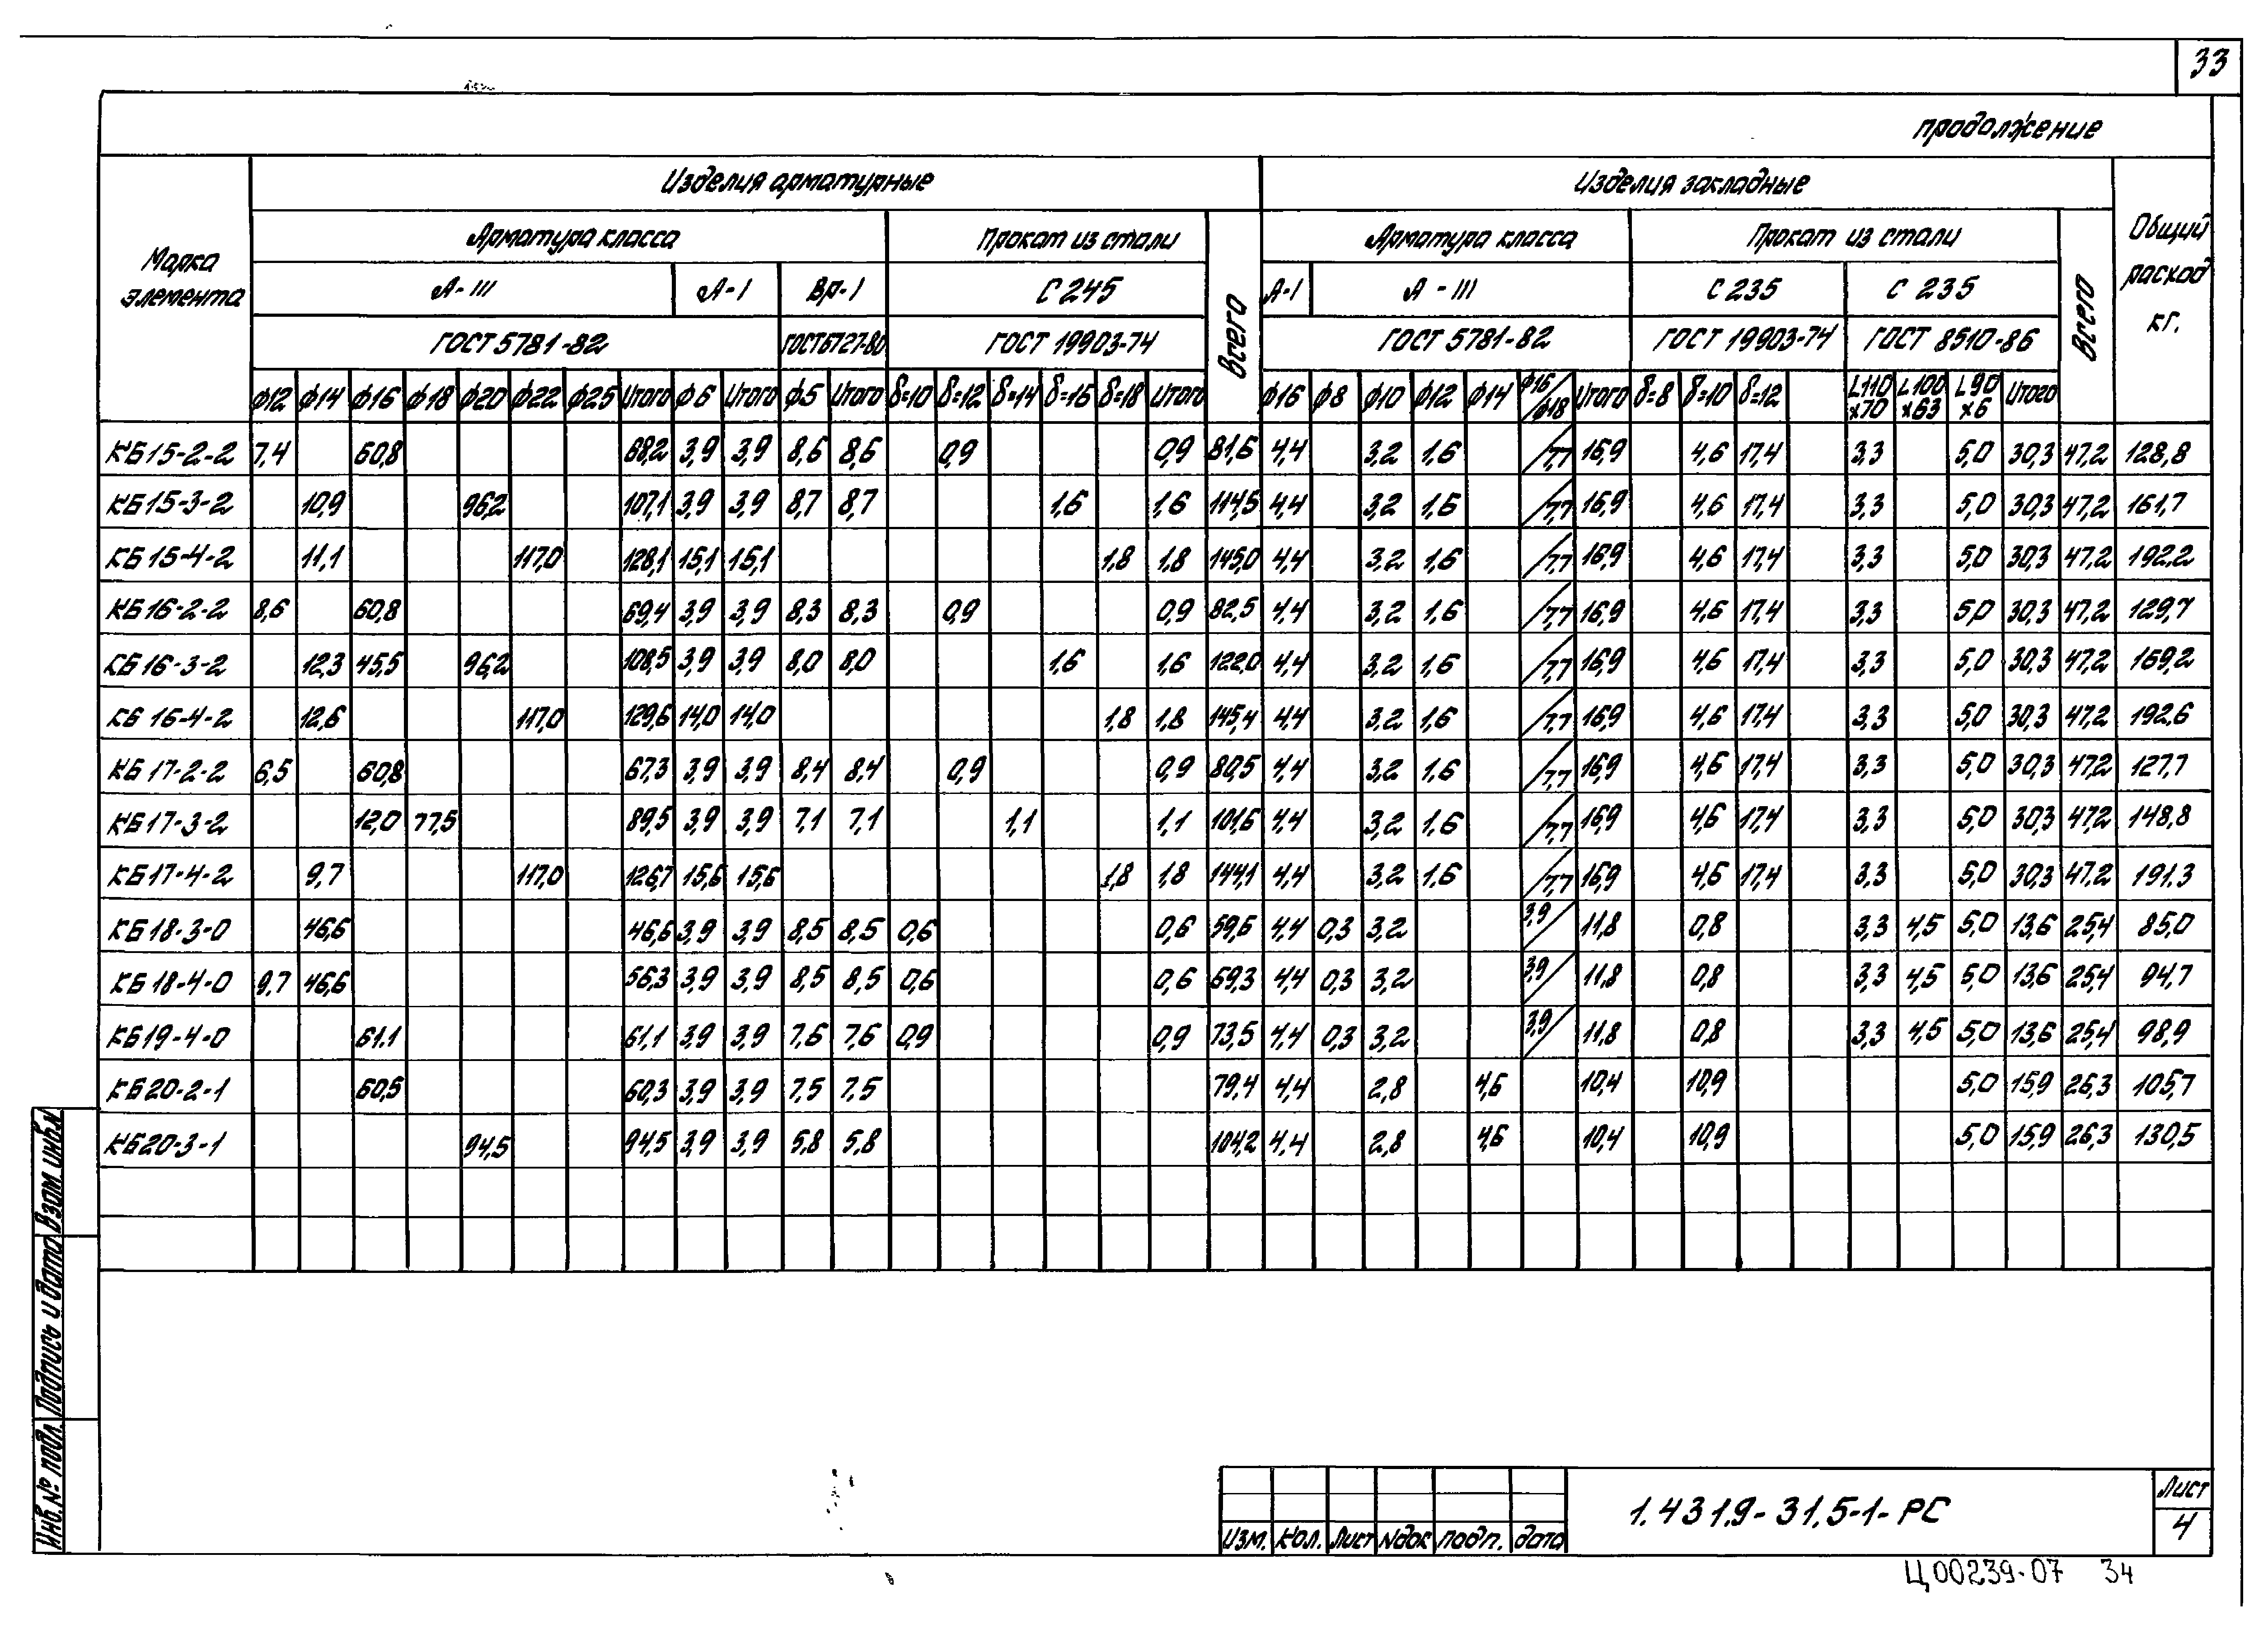 33
продолжение
Марка элемента
Изделия арматурные
Изделия закладные
Общий расход кг.
Арматура класса
Прокат из стали
Всего
Арматура класса
Прокат из стали
Всего
А-III
А-I
Вр-I
С 245
А-I
А-III
С 235
С 235
ГОСТ 5781-82
ГОСТ 6727-80
ГОСТ 19903-74
ГОСТ 5781-82
ГОСТ 19903-74
ГОСТ 8510-86
ф12 ф14 ф16 ф18 ф20 ф22 ф25 Итого ф6 Итого ф5 Итого δ=10 δ=12 δ=14 δ=16 δ=18 Итого ф16 ф8 ф10 ф12 ф14 ф16/ф18 Итого δ=8 δ=10 δ=12 L110×70 L100×63 L90×6 Итого
КБ15-2-2 7,4 60,8 68,2 3,9 3,9 8,6 8,6 0,9 0,9 81,6 4,4 3,2 1,6 /7,7 16,9 4,6 17,4 3,3 5,0 30,3 47,2 128,8
КБ15-3-2 10,9 96,2 107,1 3,9 3,9 8,7 8,7 1,6 1,6 114,5 4,4 3,2 1,6 /7,7 16,9 4,6 17,4 3,3 5,0 30,3 47,2 161,7
КБ15-4-2 11,1 117,0 128,1 15,1 15,1 1,8 1,8 145,0 4,4 3,2 1,6 /7,7 16,9 4,6 17,4 3,3 5,0 30,3 47,2 192,2
КБ16-2-2 8,6 60,8 69,4 3,9 3,9 8,3 8,3 0,9 0,9 82,5 4,4 3,2 1,6 /7,7 16,9 4,6 17,4 3,3 5,0 30,3 47,2 129,7
КБ16-3-2 12,3 45,5 96,2 108,5 3,9 3,9 8,0 8,0 1,6 1,6 122,0 4,4 3,2 1,6 /7,7 16,9 4,6 17,4 3,3 5,0 30,3 47,2 169,2
КБ16-4-2 12,6 117,0 129,6 14,0 14,0 1,8 1,8 145,4 4,4 3,2 1,6 /7,7 16,9 4,6 17,4 3,3 5,0 30,3 47,2 192,6
КБ17-2-2 6,5 60,8 67,3 3,9 3,9 8,4 8,4 0,9 0,9 80,5 4,4 3,2 1,6 /7,7 16,9 4,6 17,4 3,3 5,0 30,3 47,2 127,7
КБ17-3-2 12,0 77,5 89,5 3,9 3,9 7,1 7,1 1,1 1,1 101,6 4,4 3,2 1,6 /7,7 16,9 4,6 17,4 3,3 5,0 30,3 47,2 148,8
КБ17-4-2 9,7 117,0 126,7 15,6 15,6 1,8 1,8 144,1 4,4 3,2 1,6 /7,7 16,9 4,6 17,4 3,3 5,0 30,3 47,2 191,3
КБ18-3-0 46,6 46,6 3,9 3,9 8,5 8,5 0,6 0,6 59,6 4,4 0,3 3,2 3,9/ 11,8 0,8 3,3 4,5 5,0 13,6 25,4 85,0
КБ18-4-0 9,7 46,6 56,3 3,9 3,9 8,5 8,5 0,6 0,6 69,3 4,4 0,3 3,2 3,9/ 11,8 0,8 3,3 4,5 5,0 13,6 25,4 94,7
КБ19-4-0 61.1 61,1 3,9 3,9 7,6 7,6 0,9 0,9 73,5 4,4 0,3 3,2 3,9/ 11,8 0,8 3,3 4,5 5,0 13,6 25,4 98,9
КБ20-2-1 60,5 60,3 3,9 3,9 7,5 7,5 79,4 4,4 2,8 4,6 10,4 10,9 5,0 15,9 26,3 105,7
КБ20-3-1 94,5 94,5 3,9 3,9 5,8 5,8 104,2 4,4 2,8 4,6 10,4 10,9 5,0 15,9 26,3 130,5
Инв.№ подл. Подпись и дата Взам инв.№
Изм. Кол. Лист №док подп. дата
1.431.9-31.5-1-РС
Лист
4
Ц00239-07 34